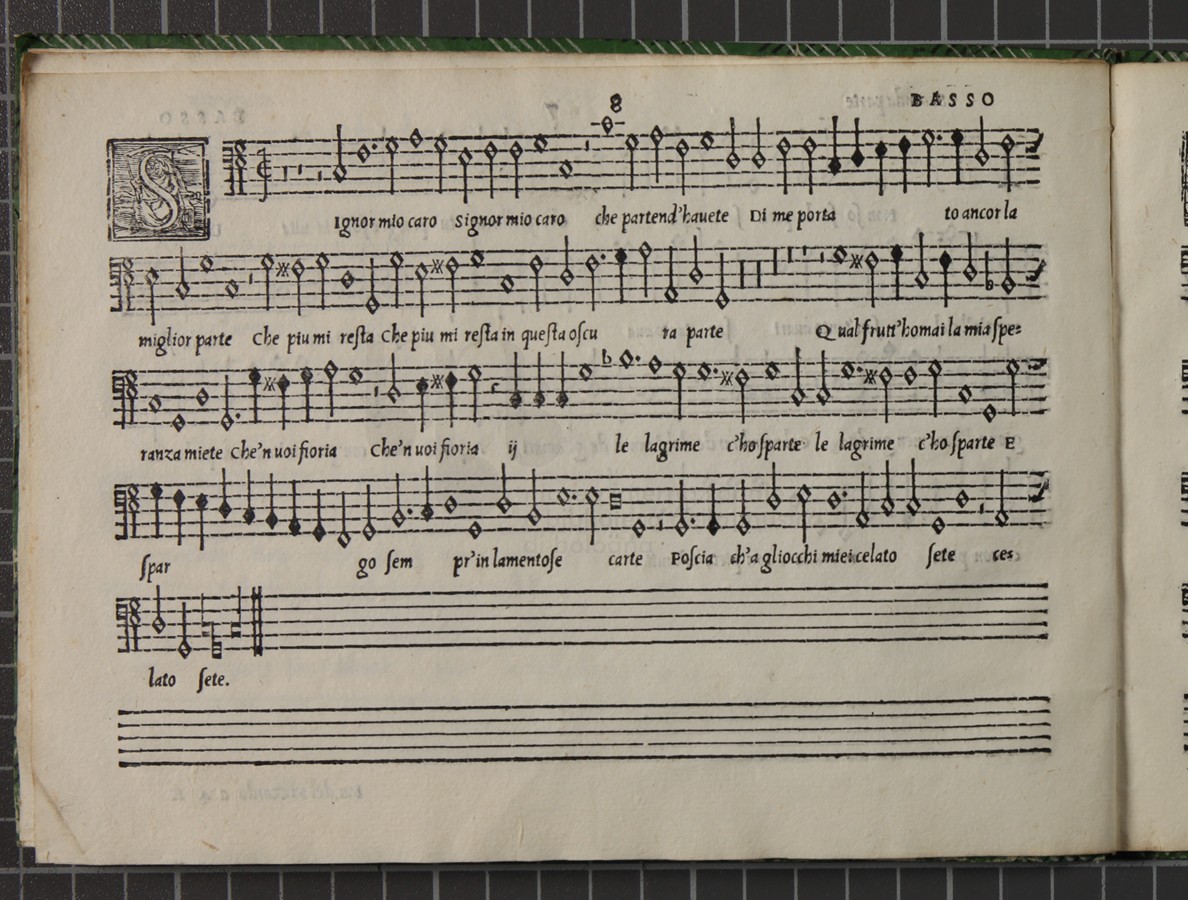 8
BASSO
SIgnor mio caro Signor mio caro che partend'hauete Di me porta to ancor la
miglior parte Che piu mi reſta Che piu mi reſta in queſta oſcu ra parte Qual frutt'homai la mia ſpe=
ranza miete Che'n uoi fioria Che'n uoi fioria ij le lagrime c'ho ſparte le lagrime c'ho ſparte E
ſpar go ſem pr'in lamentoſe carte Poſcia ch'a gliocchi miei celato ſete ce=
lato ſete.